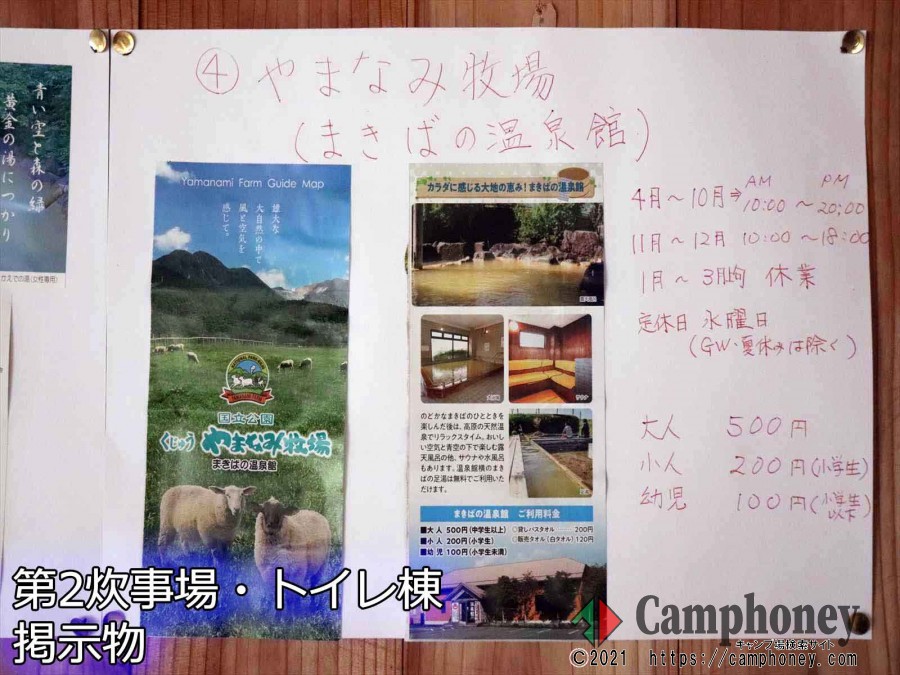 ④ やまなみ牧場
(まきばの温泉館)
青い空と森の緑
黄金の湯につかり
かえでの湯(女性専用)
Yamanami Farm Guide Map
雄大な
大自然の中で
風と空気を
感じて。
国立公園
くじゅう やまなみ牧場
まきばの温泉館
カラダに感じる大地の恵み!まきばの温泉館
露天風呂
大浴場
サウナ
足湯
のどかなまきばのひとときを
楽しんだ後は、高原の天然温
泉でリラックスタイム。おいし
い空気と青空の下で楽しむ露
天風呂の他、サウナや水風呂
もあります。温泉館横のまき
ばの足湯は無料でご利用いた
だけます。
まきばの温泉館 ご利用料金
■大 人 500円(中学生以上)
■小 人 200円(小学生)
■幼 児 100円(小学生未満)
○貸しバスタオル 200円
○販売タオル(白タオル) 120円
AM PM
4月~10月⇒10:00~20:00
11月~12月 10:00~18:00
1月~3月上旬 休業
定休日 水曜日
(GW・夏休みは除く)
大人 500円
小人 200円(小学生)
幼児 100円(小学生以下)
第2炊事場・トイレ棟
掲示物
Camphoney
キャンプ場検索サイト
©2021 https://camphoney.com